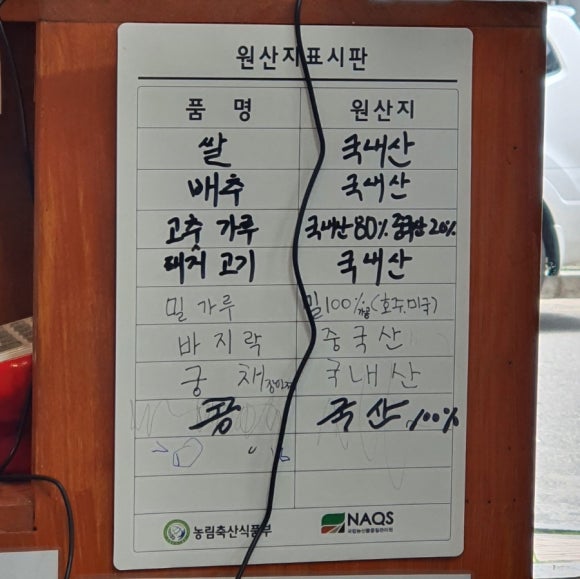 원산지표시판
품 명 원산지
쌀 국내산
배추 국내산
고춧 가루 국내산 80% 중국산 20%
돼지 고기 국내산
밀 가루 밀 100% (호주.미국)
바지락 중국산
궁 채 국내산
콩 국산 100%
농림축산식품부 NAQS
국립농산물품질관리원